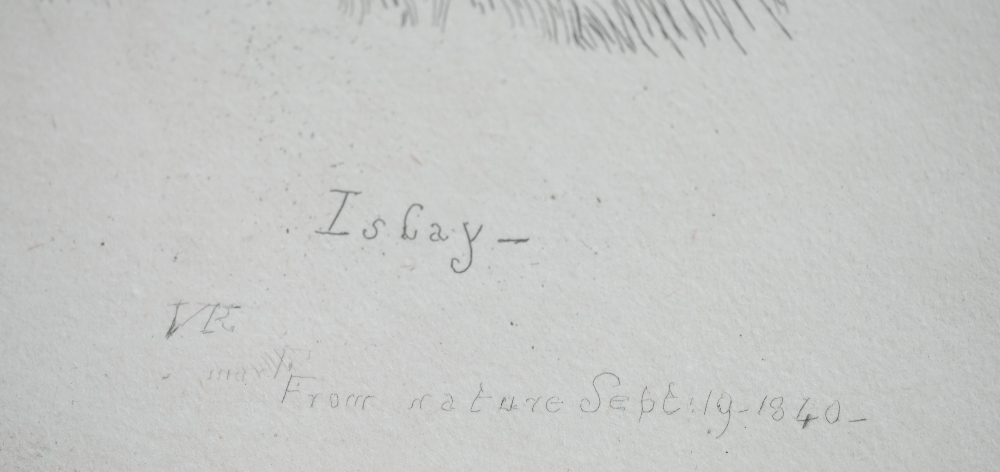 Islay —
VR
From nature Sept: 19 - 1840 —